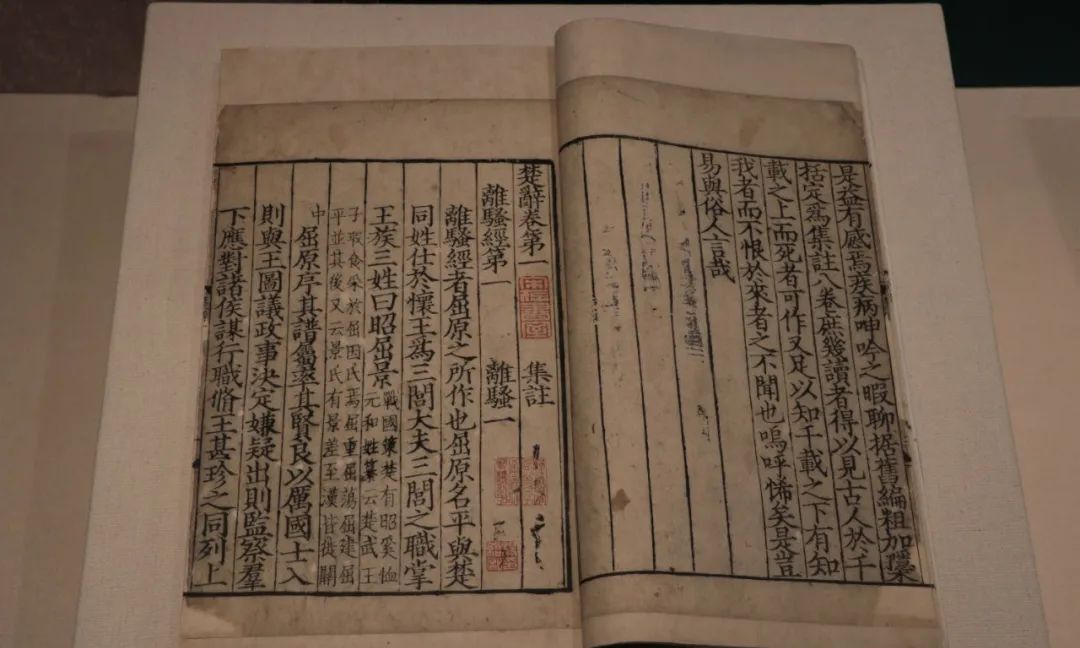 是益有感焉疾病呻吟之暇聊据舊編粗加櫽
括定爲集註八卷庶幾讀者得以見古人於千
載之上而死者可作又足以知千載之下有知
我者而不恨於來者之不聞也嗚呼悕矣是豈
易與俗人言哉
楚辭卷第一 集註
離騷經第一 離騷一
離騷經者屈原之所作也屈原名平與楚
同姓仕於懷王爲三閭大夫三閭之職掌
王族三姓曰昭屈景戰國策楚有昭奚恤
元和姓纂云楚武王
子瑕食采於屈因氏焉屈重屈蕩屈建屈
平並其後又云景氏有景差至漢皆徙關
中 屈原序其譜屬率其賢良以厲國士入
則與王圖議政事決定嫌疑出則監察羣
下應對諸侯謀行職脩王甚珍之同列上